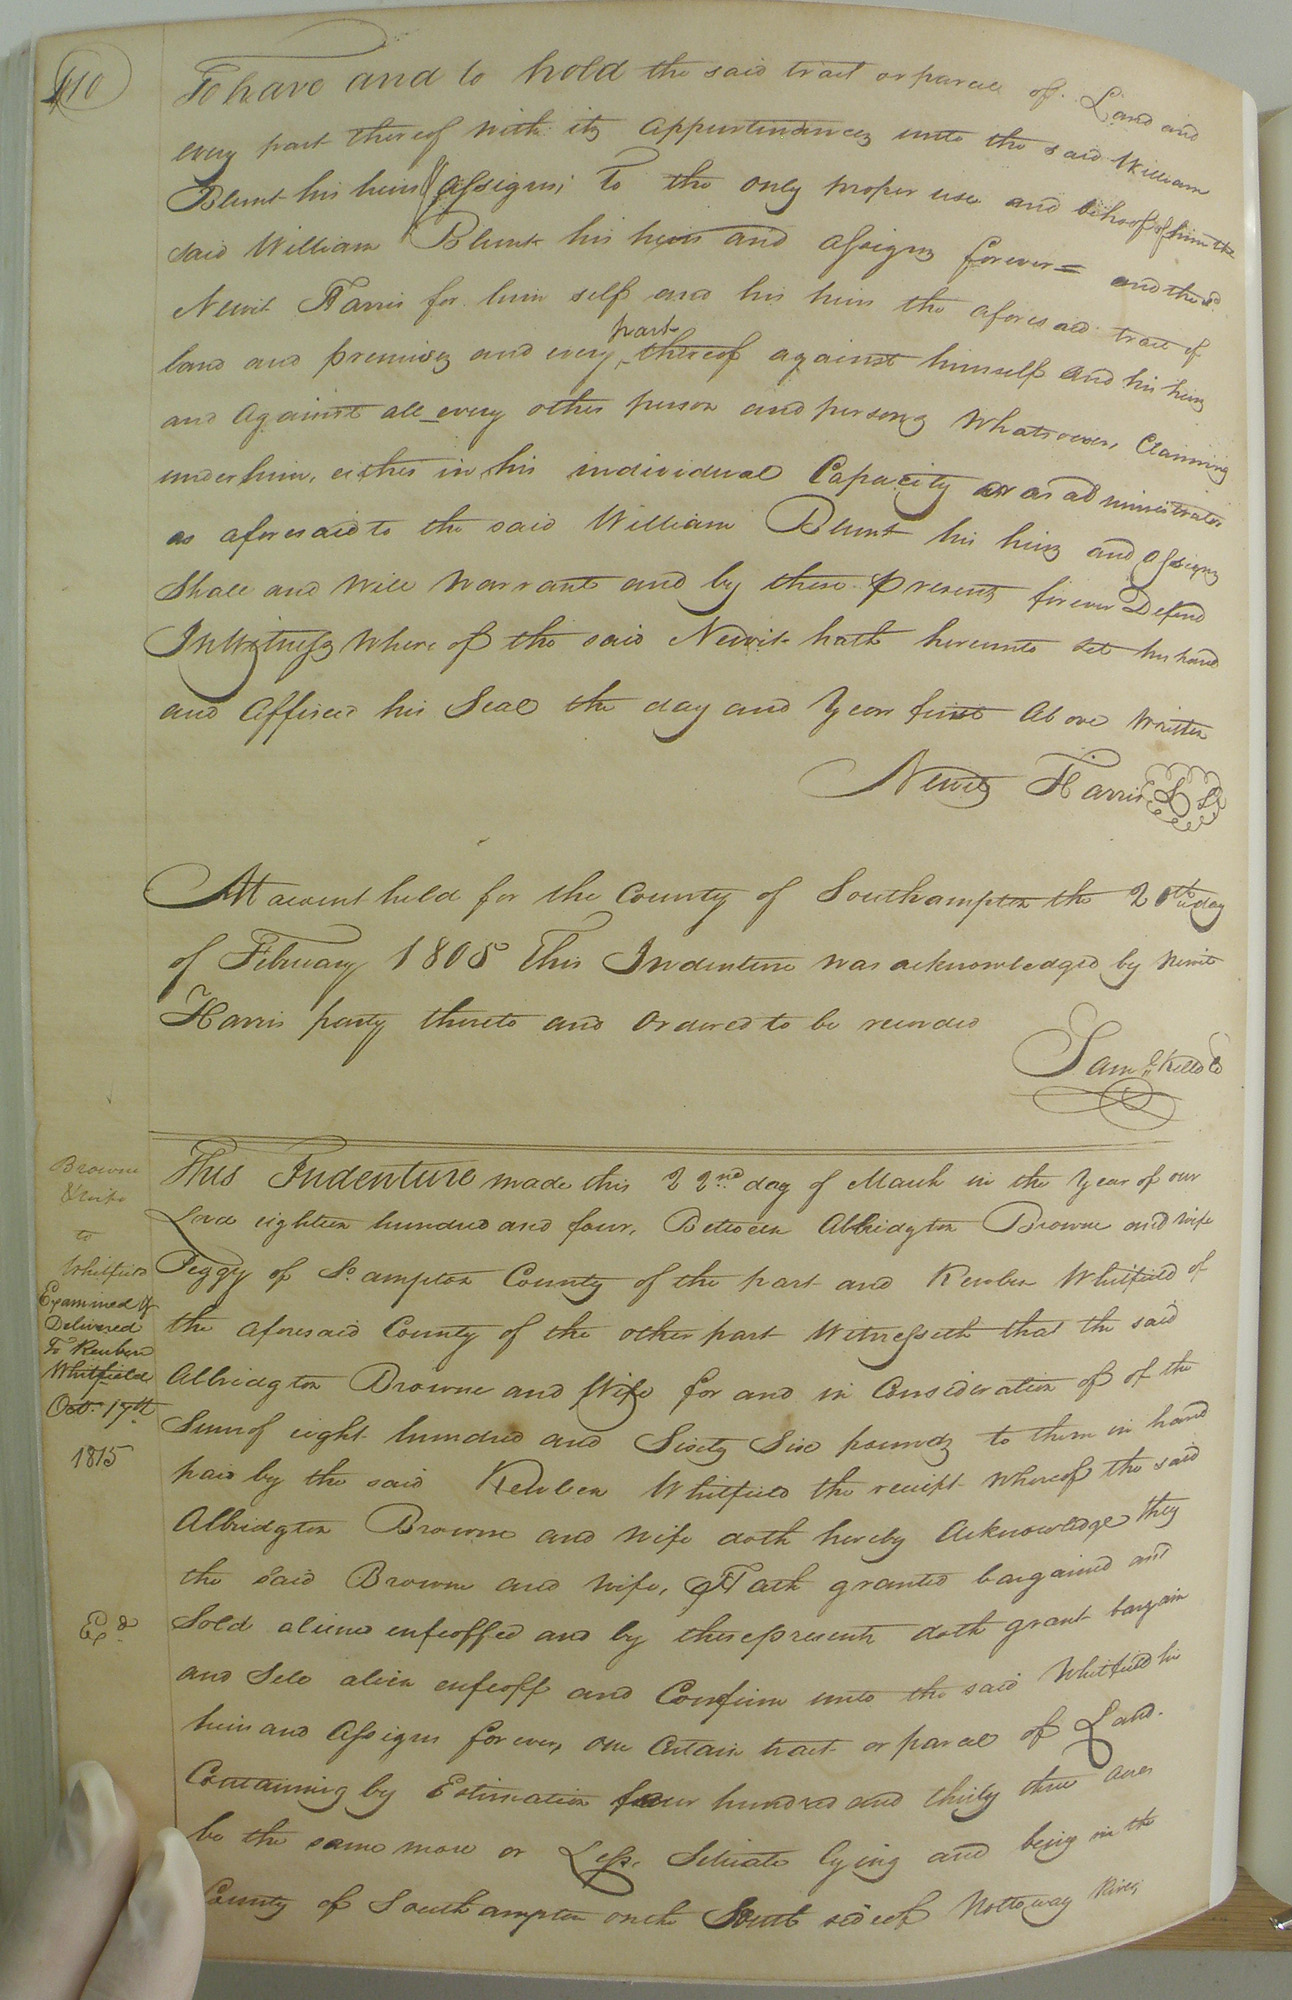 110
To have and to hold the said tract or parcel of Land and
every part thereof with its appurtinances unto the said William
Blunt his heirs & assigns; To the only proper use and behoof of him the
said William Blunt his heirs and assigns forever = and the sd.
Newit Harris for him self and his heirs the aforesaid tract of
land and premises and every part thereof against himself and his heirs
and against all every other person and persons Whatsoever, Claiming
under him, either in his individual Capacity or as administrator
as aforesaid to the said William Blunt his heirs and assigns
Shall and Will Warrant and by these presents forever Defend
In Witness Where of the said Newit hath hereunto set his hand
and affixed his Seal the day and Year first Above Written
Newit Harris LS
At a court held for the County of Southampton the 20th day
of February 1805 This Indenture was acknowledged by Newit
Harris party thereto and Ordered to be recorded
Saml. Kello CC
Browne
& wife
to
Whitfield
Examined &
Delivered
To Reuben
Whitfield
Oct. 17th
1815
Exd.
This Indenture made this 22nd day of March in the Year of our
Lord eighteen hundred and four, Between Albridgton Browne and wife
Peggy of So. ampton County of the part and Reuben Whitfield of
the aforesaid County of the other part Witnesseth that the said
Albridgton Browne and Wife for and in Consideration of of the
Sum of eight hundred and Sixty Six pounds to them in hand
paid by the said Reuben Whitfield the receipt Whereof the said
Albridgton Browne and wife doth hereby Acknowledge they
the said Browne and wife, Hath granted bargained and
Sold aliend enfeoffed and by these presents doth grant bargain
and Sell alien enfeoff and Confirm unto the said Whitfield his
heirs and Assigns forever, one Certain tract or parcel of Land.
Containing by Estimation four hundred and thirty three acres
be the same more or Less. Situate lying and being in the
County of Southampton on the South side of Nottoway River